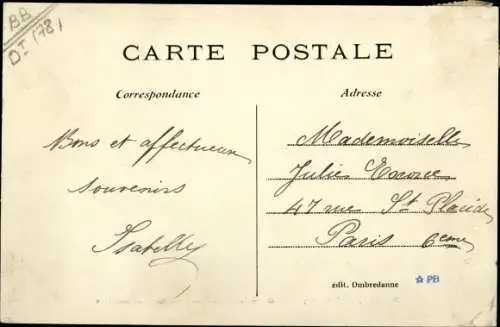 BB
DI (78)
CARTE POSTALE
Correspondance
Adresse
Bons et affectueux
souvenirs
Isabelle
Mademoiselle
Julie
47 rue St Placide
Paris 6eme
édit. Ombredanne
PB